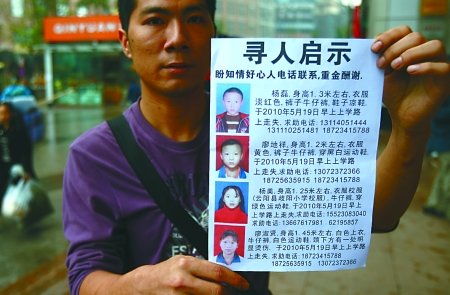 QINYUAN
寻人启示
盼知情好心人电话联系,重金酬谢.
杨磊,身高1.3米左右,衣服
淡红色,裤子牛仔裤,鞋子凉鞋,
于2010年5月19日早上上学路
上走失.求助电话:13114051444
13110251481 18723415788
廖地祥,身高1.2米左右,衣服
黄色,裤子牛仔裤,穿黑白运动鞋,
于2010年5月19日早上上学路
上走失.求助电话:13072372366
18725635915 18723415788
杨美,身高1.25米左右,衣服校服
(云阳县歧阳小学校服),牛仔裤,穿
绿色运动鞋,于2010年5月19日早上
上学路上走失.求助电话:15523083040
电话:13667617981 62195857
廖淑贤,身高1.45米左右,白色上衣,
牛仔裤,白色运动鞋,颈下方有一处明
显烫伤,于2010年5月19日早上上学路
上走失.求助电话:18723415788
18725635915 13072372366